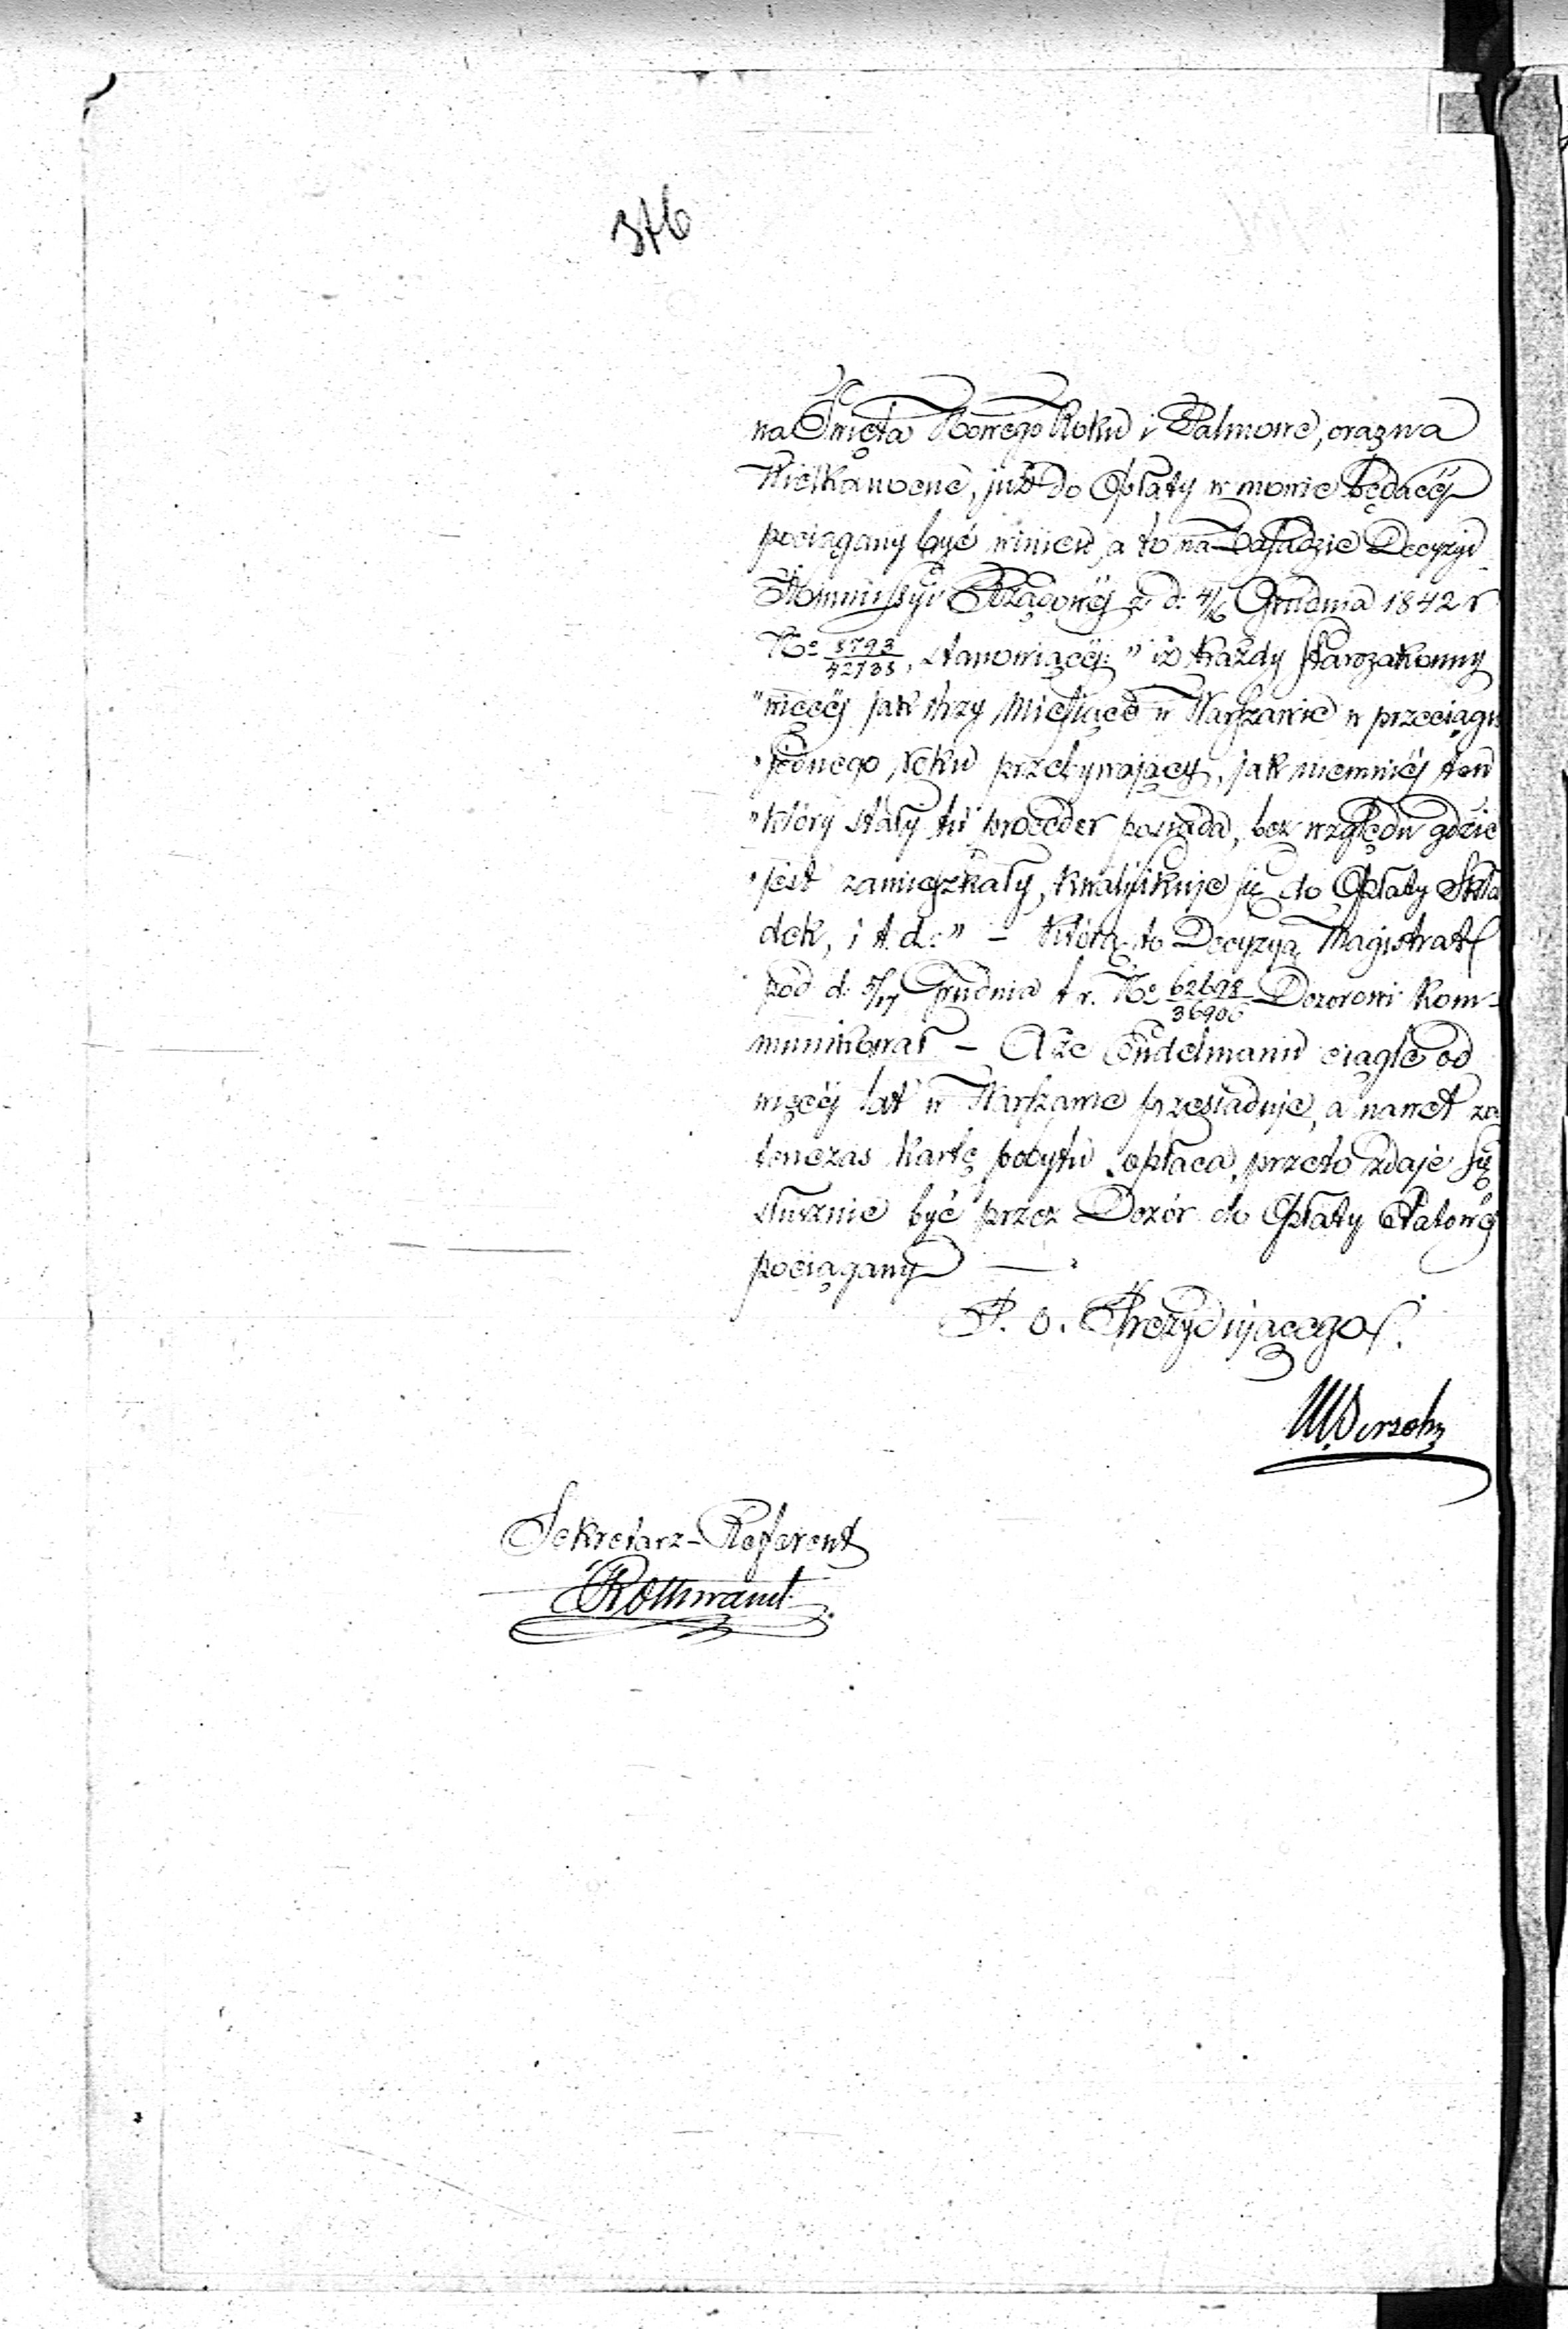 376
na Święta Nowego Roku i Palmowe, oraz na
Wielkanocne, już do Opłaty w mowie będącéj
pociągany być winien, a to na Zasadzie Decyzyi
Kommissyi Rządowéj z d. 4/16 Grudnia 1842 r
No 5793/42735, stanowiącéj: "iż każdy Starozakonny
"więcéj jak trzy Miesiące w Warszawie w przeciągu
"jednego Roku przebywający, jak niemniéj ten
"który stały tu proceder posiada, bez względu gdzie
"jest zamieszkały, kwalifikuje się do Opłaty Skła
dek, i t. d.:" – którą to Decyzyą Magistrat
pod d. 5/17 Grudnia t. r. No 62698/36906 Dozorowi kom-
munikował – A że Eudelmann ciągle od
więcéj lat w Warszawie przesiaduje, a nawet za
ten czas kartę pobytu opłaca, przeto zdaje się
słusznie być przez Dozór do Opłaty Etatowéj
pociągany —
P. O. Prezydującego
M. Dersohn
Sekretarz-Referent
Rothwand